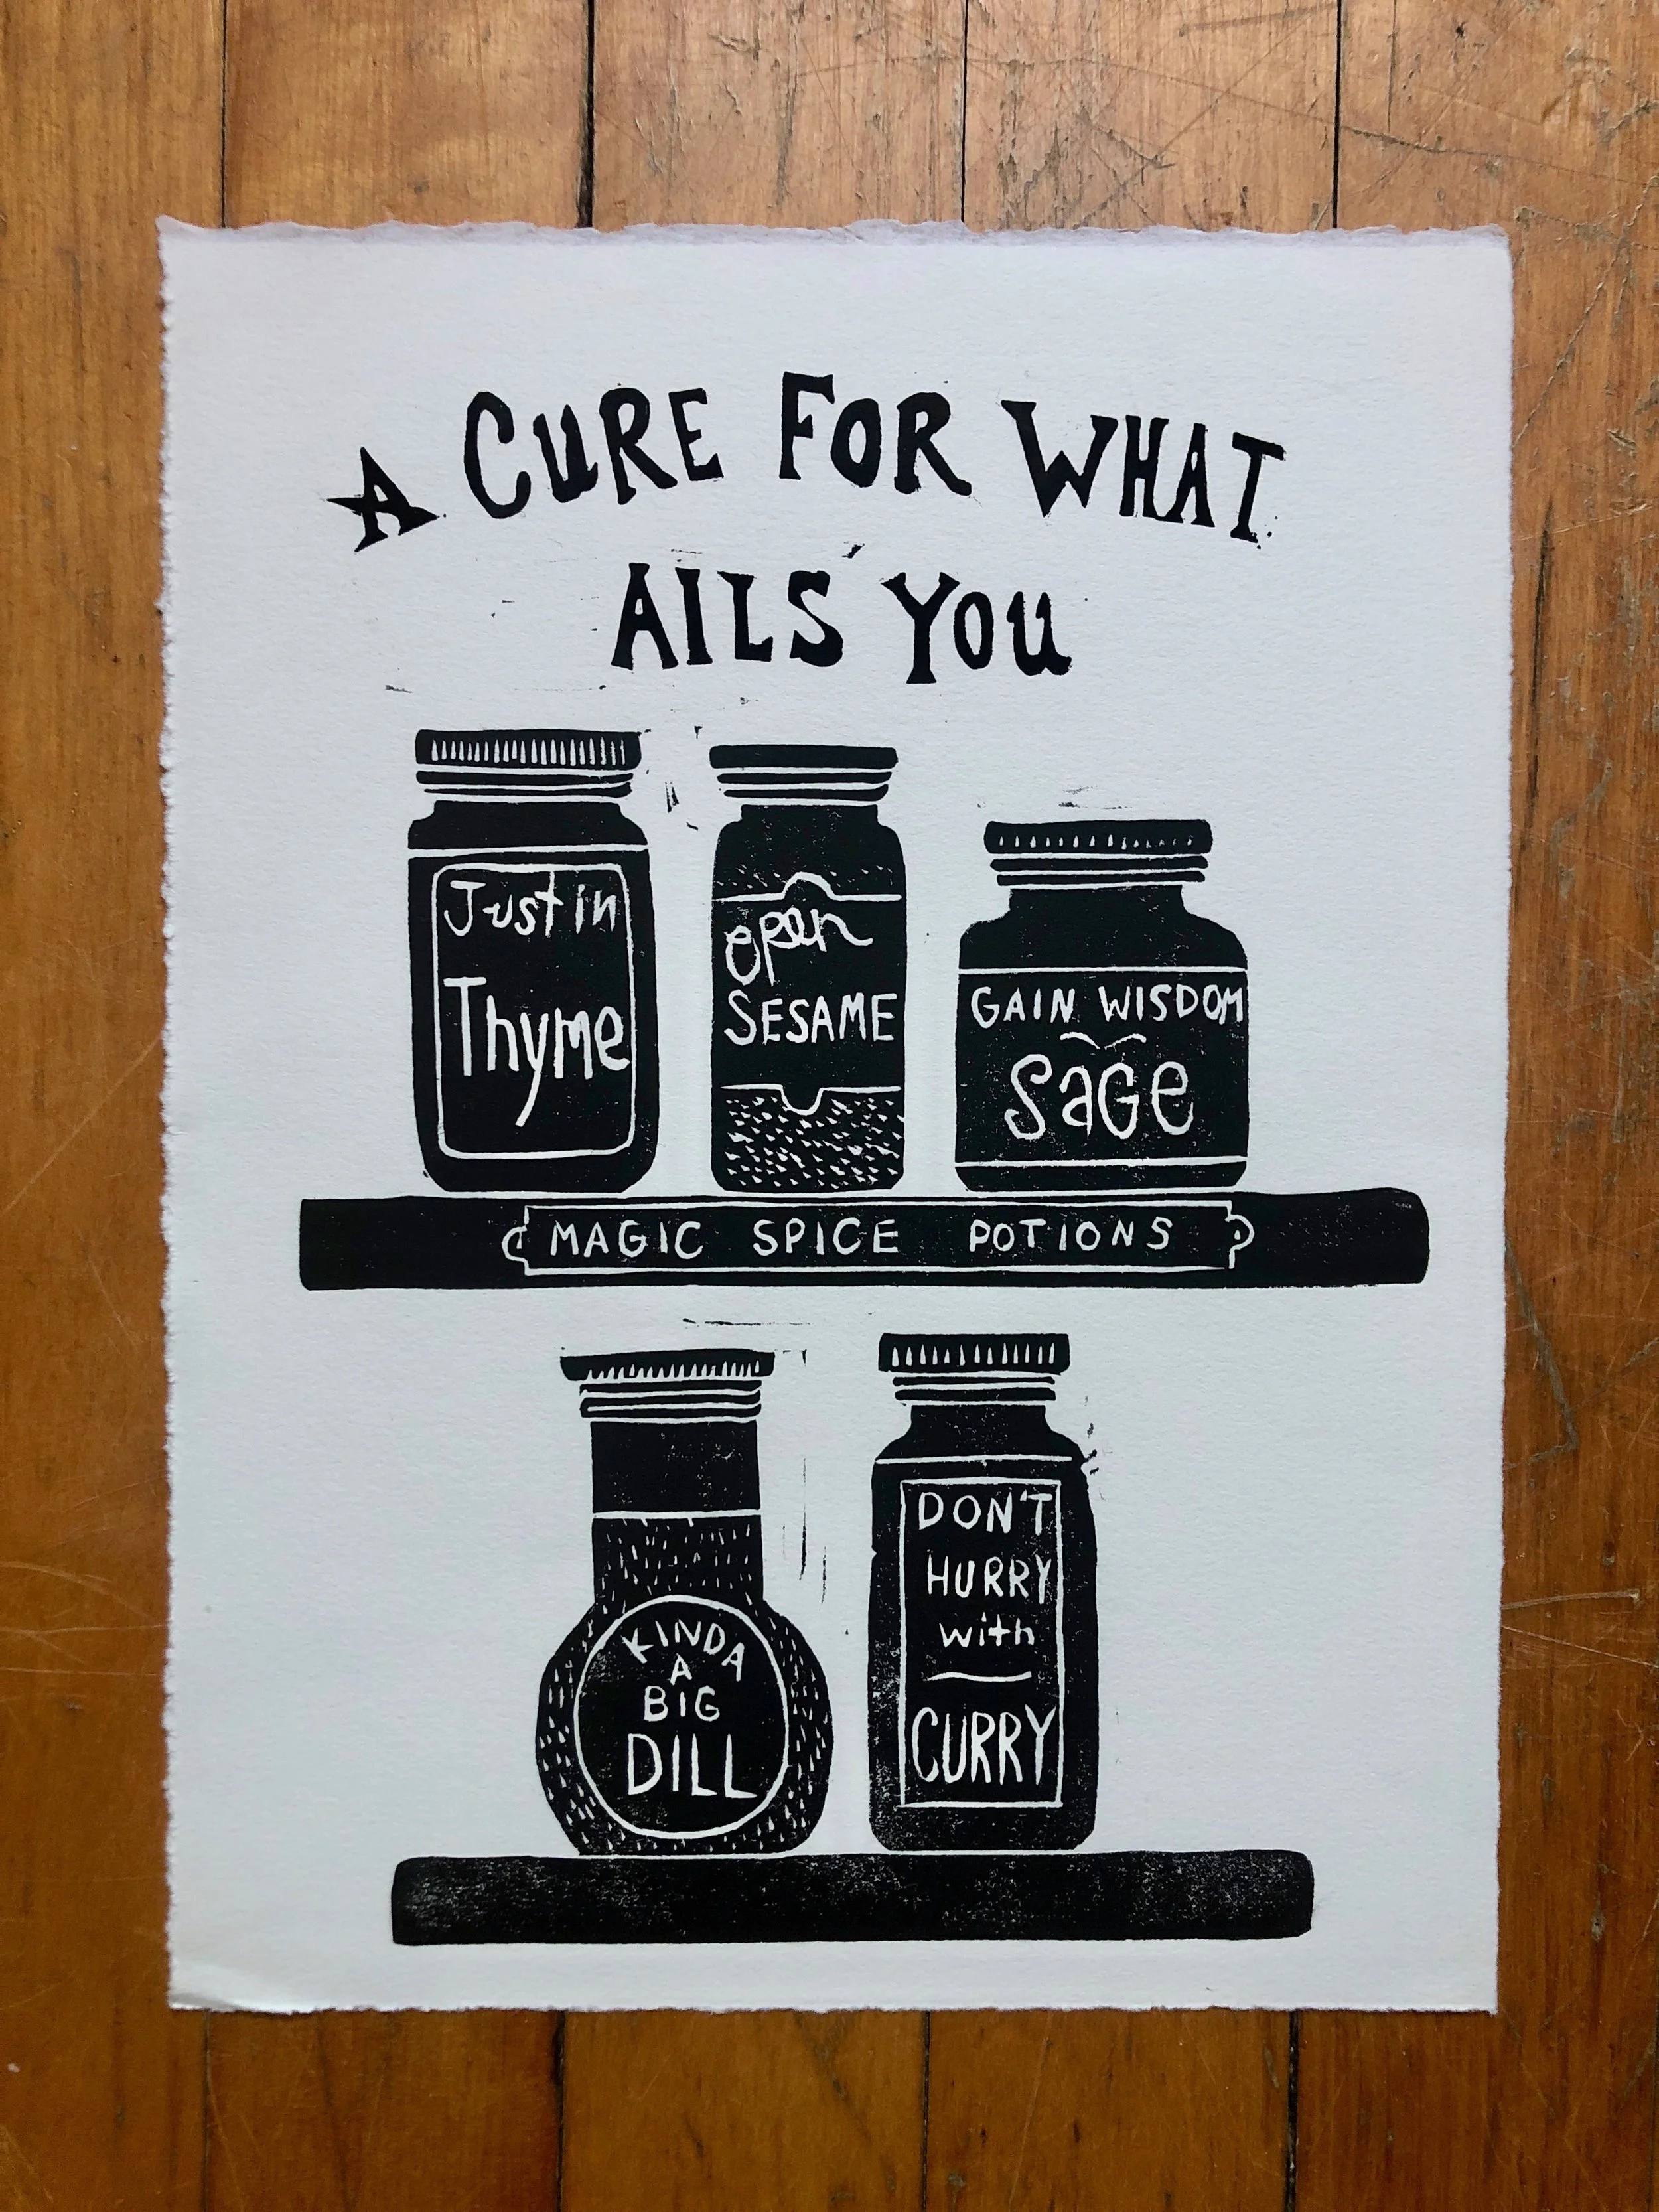 A CURE FOR WHAT
AILS YOU
Just in
Thyme
open
SESAME
GAIN WISDOM
SaGe
MAGIC SPICE POTIONS
KINDA
A
BIG
DILL
DON'T
HURRY
with
CURRY